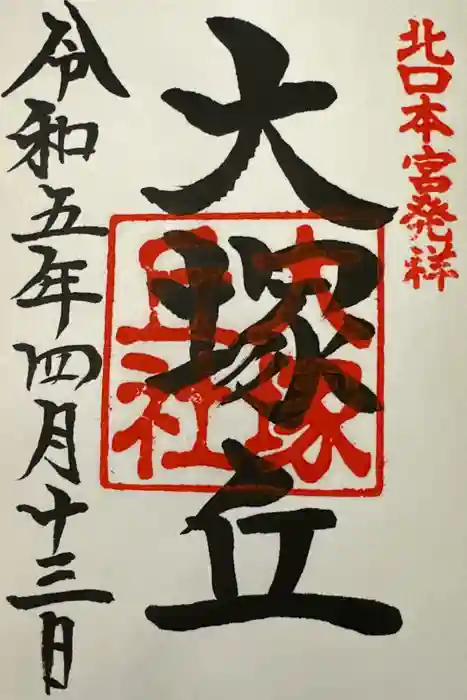 北口本宮発祥
大塚丘
大塚
丘社
令和五年四月十三日